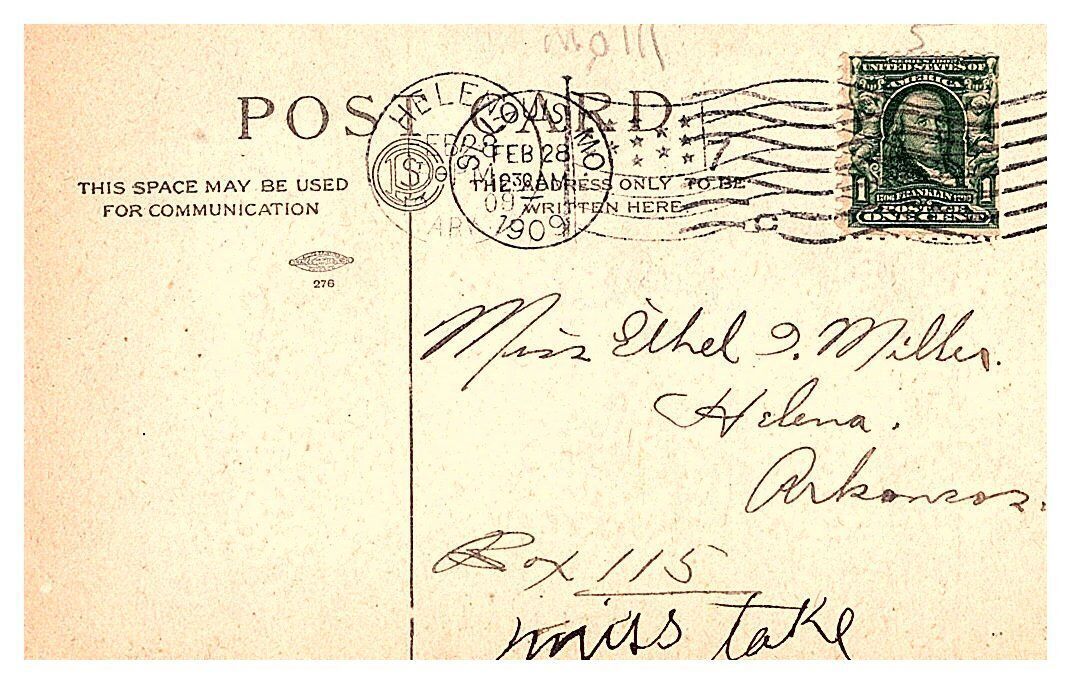 POST CARD
THIS SPACE MAY BE USED
FOR COMMUNICATION
THE ADDRESS ONLY TO BE
WRITTEN HERE
276
HELENA
FEB 28
ARK.
ST. LOUIS, MO
FEB 28
1230AM
1909
7
UNITED STATES OF
AMERICA
FRANKLIN
1 1
ONE CENT
Miss Ethel I. Miller.
Helena.
Arkansas.
Box 115
miss take